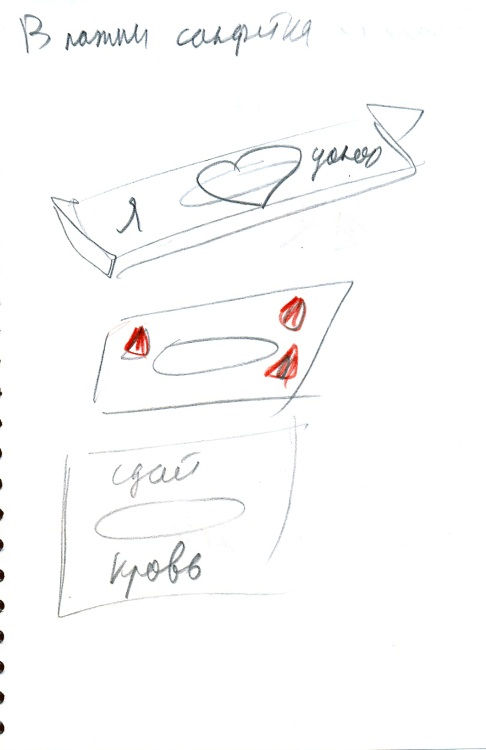 В пачки салфетка
Я донор
сдай
кровь